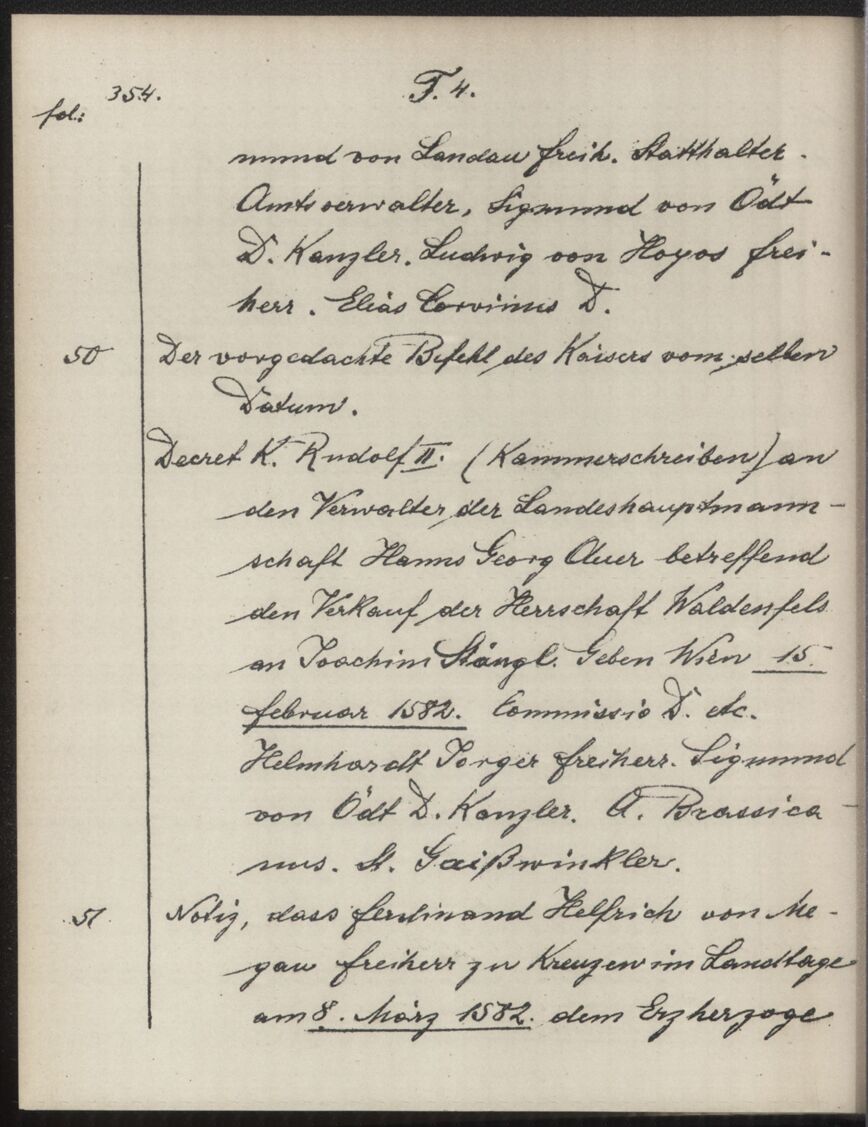 354.
F. 4.
fol:
mund von Landau freih. Statthalter.
Amtsverwalter, Sigmund von Ödt
D. Kanzler. Ludwig von Hoyos frei-
herr. Elias Corvinus D.
50 Der vorgedachte Befehl des Kaisers vom selben
Datum.
Decret K. Rudolf II. (Kammerschreiben) an
den Verwalter der Landeshauptmann-
schaft Hanns Georg Auer betreffend
den Verkauf der Herrschaft Waldenfels
an Joachim Stängl. Geben Wien 15.
februar 1582. Commissio D. etc.
Helmhardt Jorger freiherr. Sigmund
von Ödt D. Kanzler. A. Brassica-
nus. St. Gaißwinkler.
51 Notiz, dass ferdinand Helfrich von Me-
gau freiherr zu Kreuzen im Landtage
am 8. März 1582. dem Erzherzoge